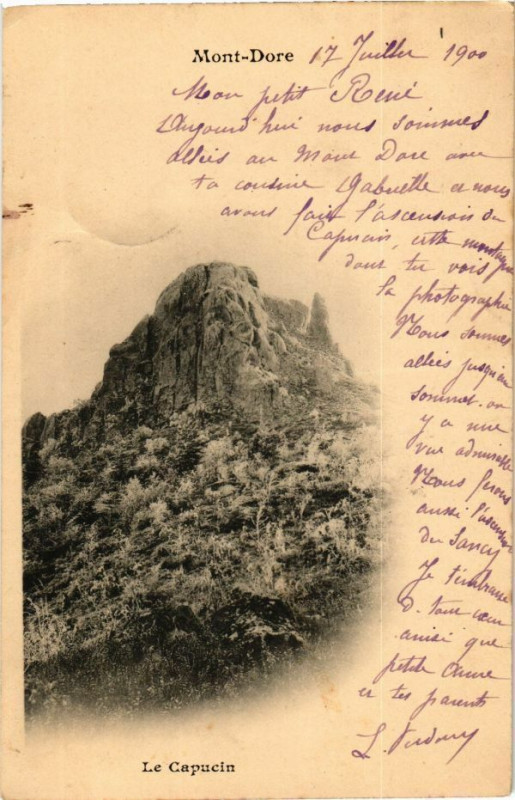 Mont-Dore 17 Juillet 1900
Mon petit René
Aujourd'hui nous sommes
allées au Mont Dore avec
ta cousine Gabrielle et nous
avons fait l'ascension du
Capucin, cette montagne
dont tu vois
la photographie
Nous sommes
allées jusqu'au
sommet. on
y a une
vue admirable
Nous ferons
aussi l'ascension
du Sancy
Je t'embrasse
de tout cœur
ainsi que
petite
et tes parents
L.
Le Capucin